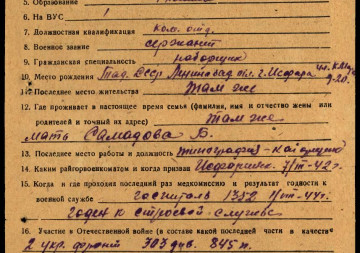 5. Образование
6. На ВУС 1
7. Должностная квалификация ком. отд.
8. Военное звание сержант
9. Гражданская специальность наборщик
10. Место рождения Тад. ССР Ленинабад обл. г. Исфара
11. Последнее место жительства Там же
12. Где проживает в настоящее время семья (фамилия, имя и отчество жены или
родителей и точный их адрес) Там же
мать Самадова Б.
13. Последнее место работы и должность типография - наборщик
14. Каким райгорвоенкоматом и когда призван Исфаринск. 7/III-42 г.
15. Когда и где проходил последний раз медкомиссию и результат годности к
военной службе госпиталь III-44 г.
годен к строевой службе
16. Участие в Отечественной войне (в составе какой последней части и в качестве
2 укр. фронт 303 див. 845 п.